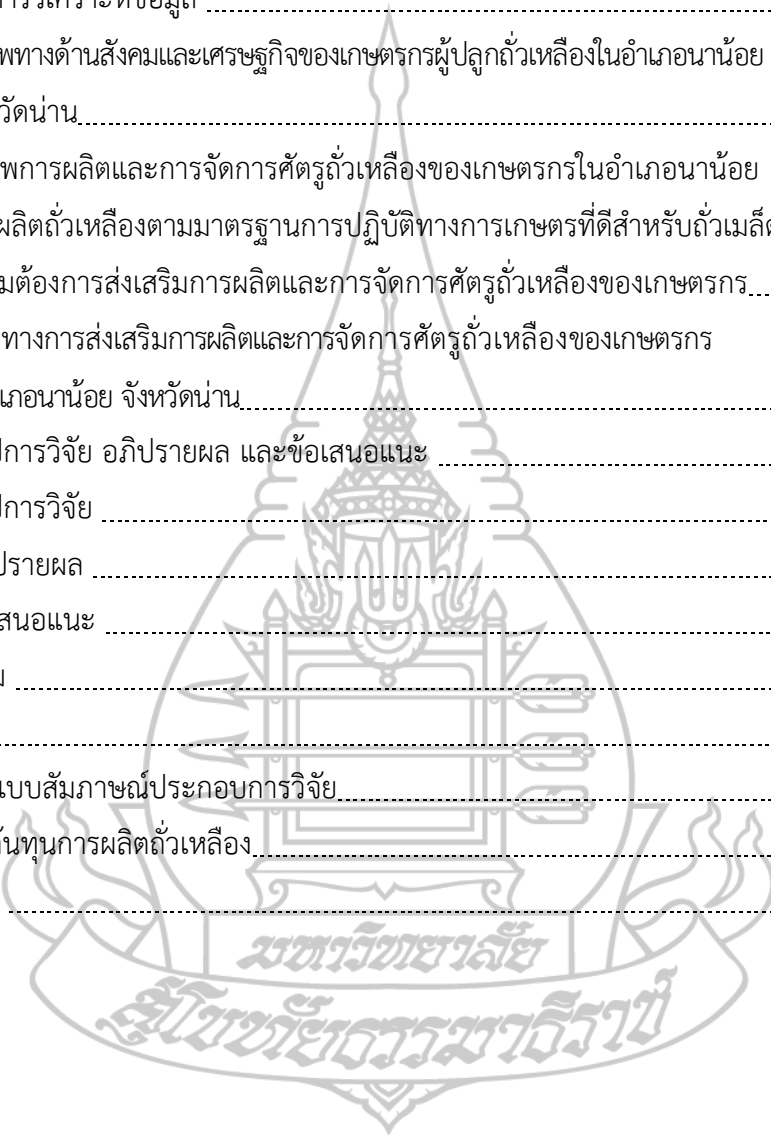 ารวิเคราะห์ข้อมูล
พทางด้านสังคมและเศรษฐกิจของเกษตรกรผู้ปลูกถั่วเหลืองในอำเภอนาน้อย
วัดน่าน
พการผลิตและการจัดการศัตรูถั่วเหลืองของเกษตรกรในอำเภอนาน้อย
ผลิตถั่วเหลืองตามมาตรฐานการปฏิบัติทางการเกษตรที่ดีสำหรับถั่วเมล็ด
มต้องการส่งเสริมการผลิตและการจัดการศัตรูถั่วเหลืองของเกษตรกร
ทางการส่งเสริมการผลิตและการจัดการศัตรูถั่วเหลืองของเกษตรกร
เภอนาน้อย จังหวัดน่าน
ปการวิจัย อภิปรายผล และข้อเสนอแนะ
ปการวิจัย
ปรายผล
สนอแนะ
ม
แบบสัมภาษณ์ประกอบการวิจัย
ต้นทุนการผลิตถั่วเหลือง
มหาวิทยาลัย
สุโขทัยธรรมาธิราช